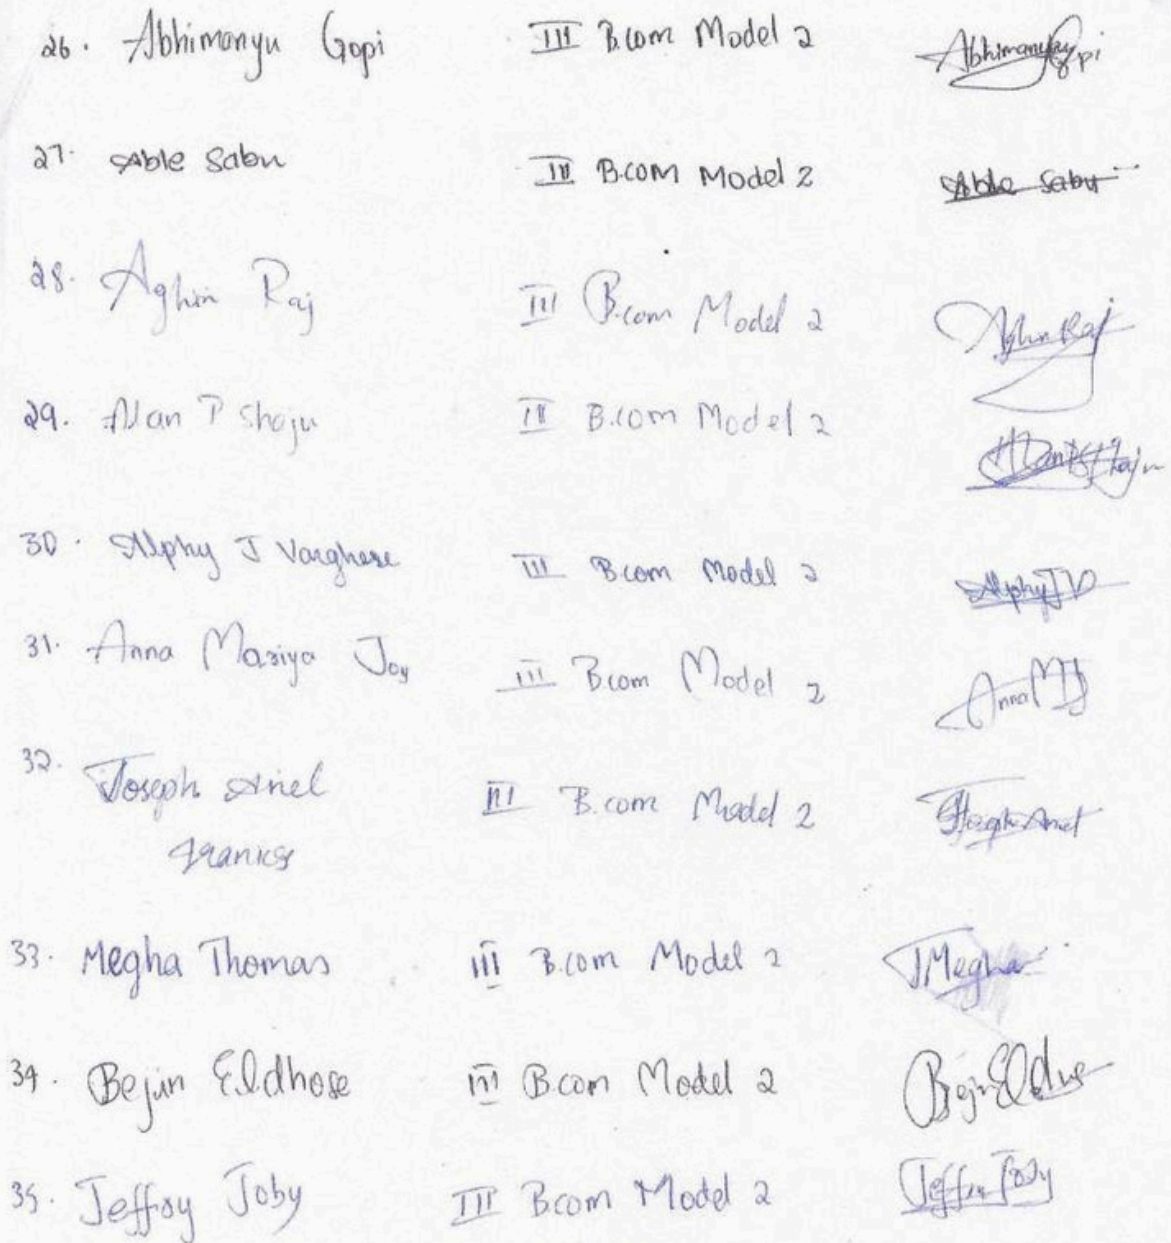 26. Abhimanyu Gopi III B.com Model 2 Abhimanyu Gopi
27. Able Sabu III B.com Model 2 Able Sabu
28. Aghin Raj III B.com Model 2 Aghin Raj
29. Alan P Shaju III B.com Model 2 Alan P Shaju
30. Alphy J Varghese III B.com Model 2 Alphy J V
31. Anna Mariya Joy III B.com Model 2 Anna M J
32. Joseph Ainel III B.com Model 2 Joseph Ainel
Franics
33. Megha Thomas III B.com Model 2 Megha
34. Bejin Eldhose III B.com Model 2 Bejin Eldhose
35. Jeffry Joby III B.com Model 2 Jeffry Joby